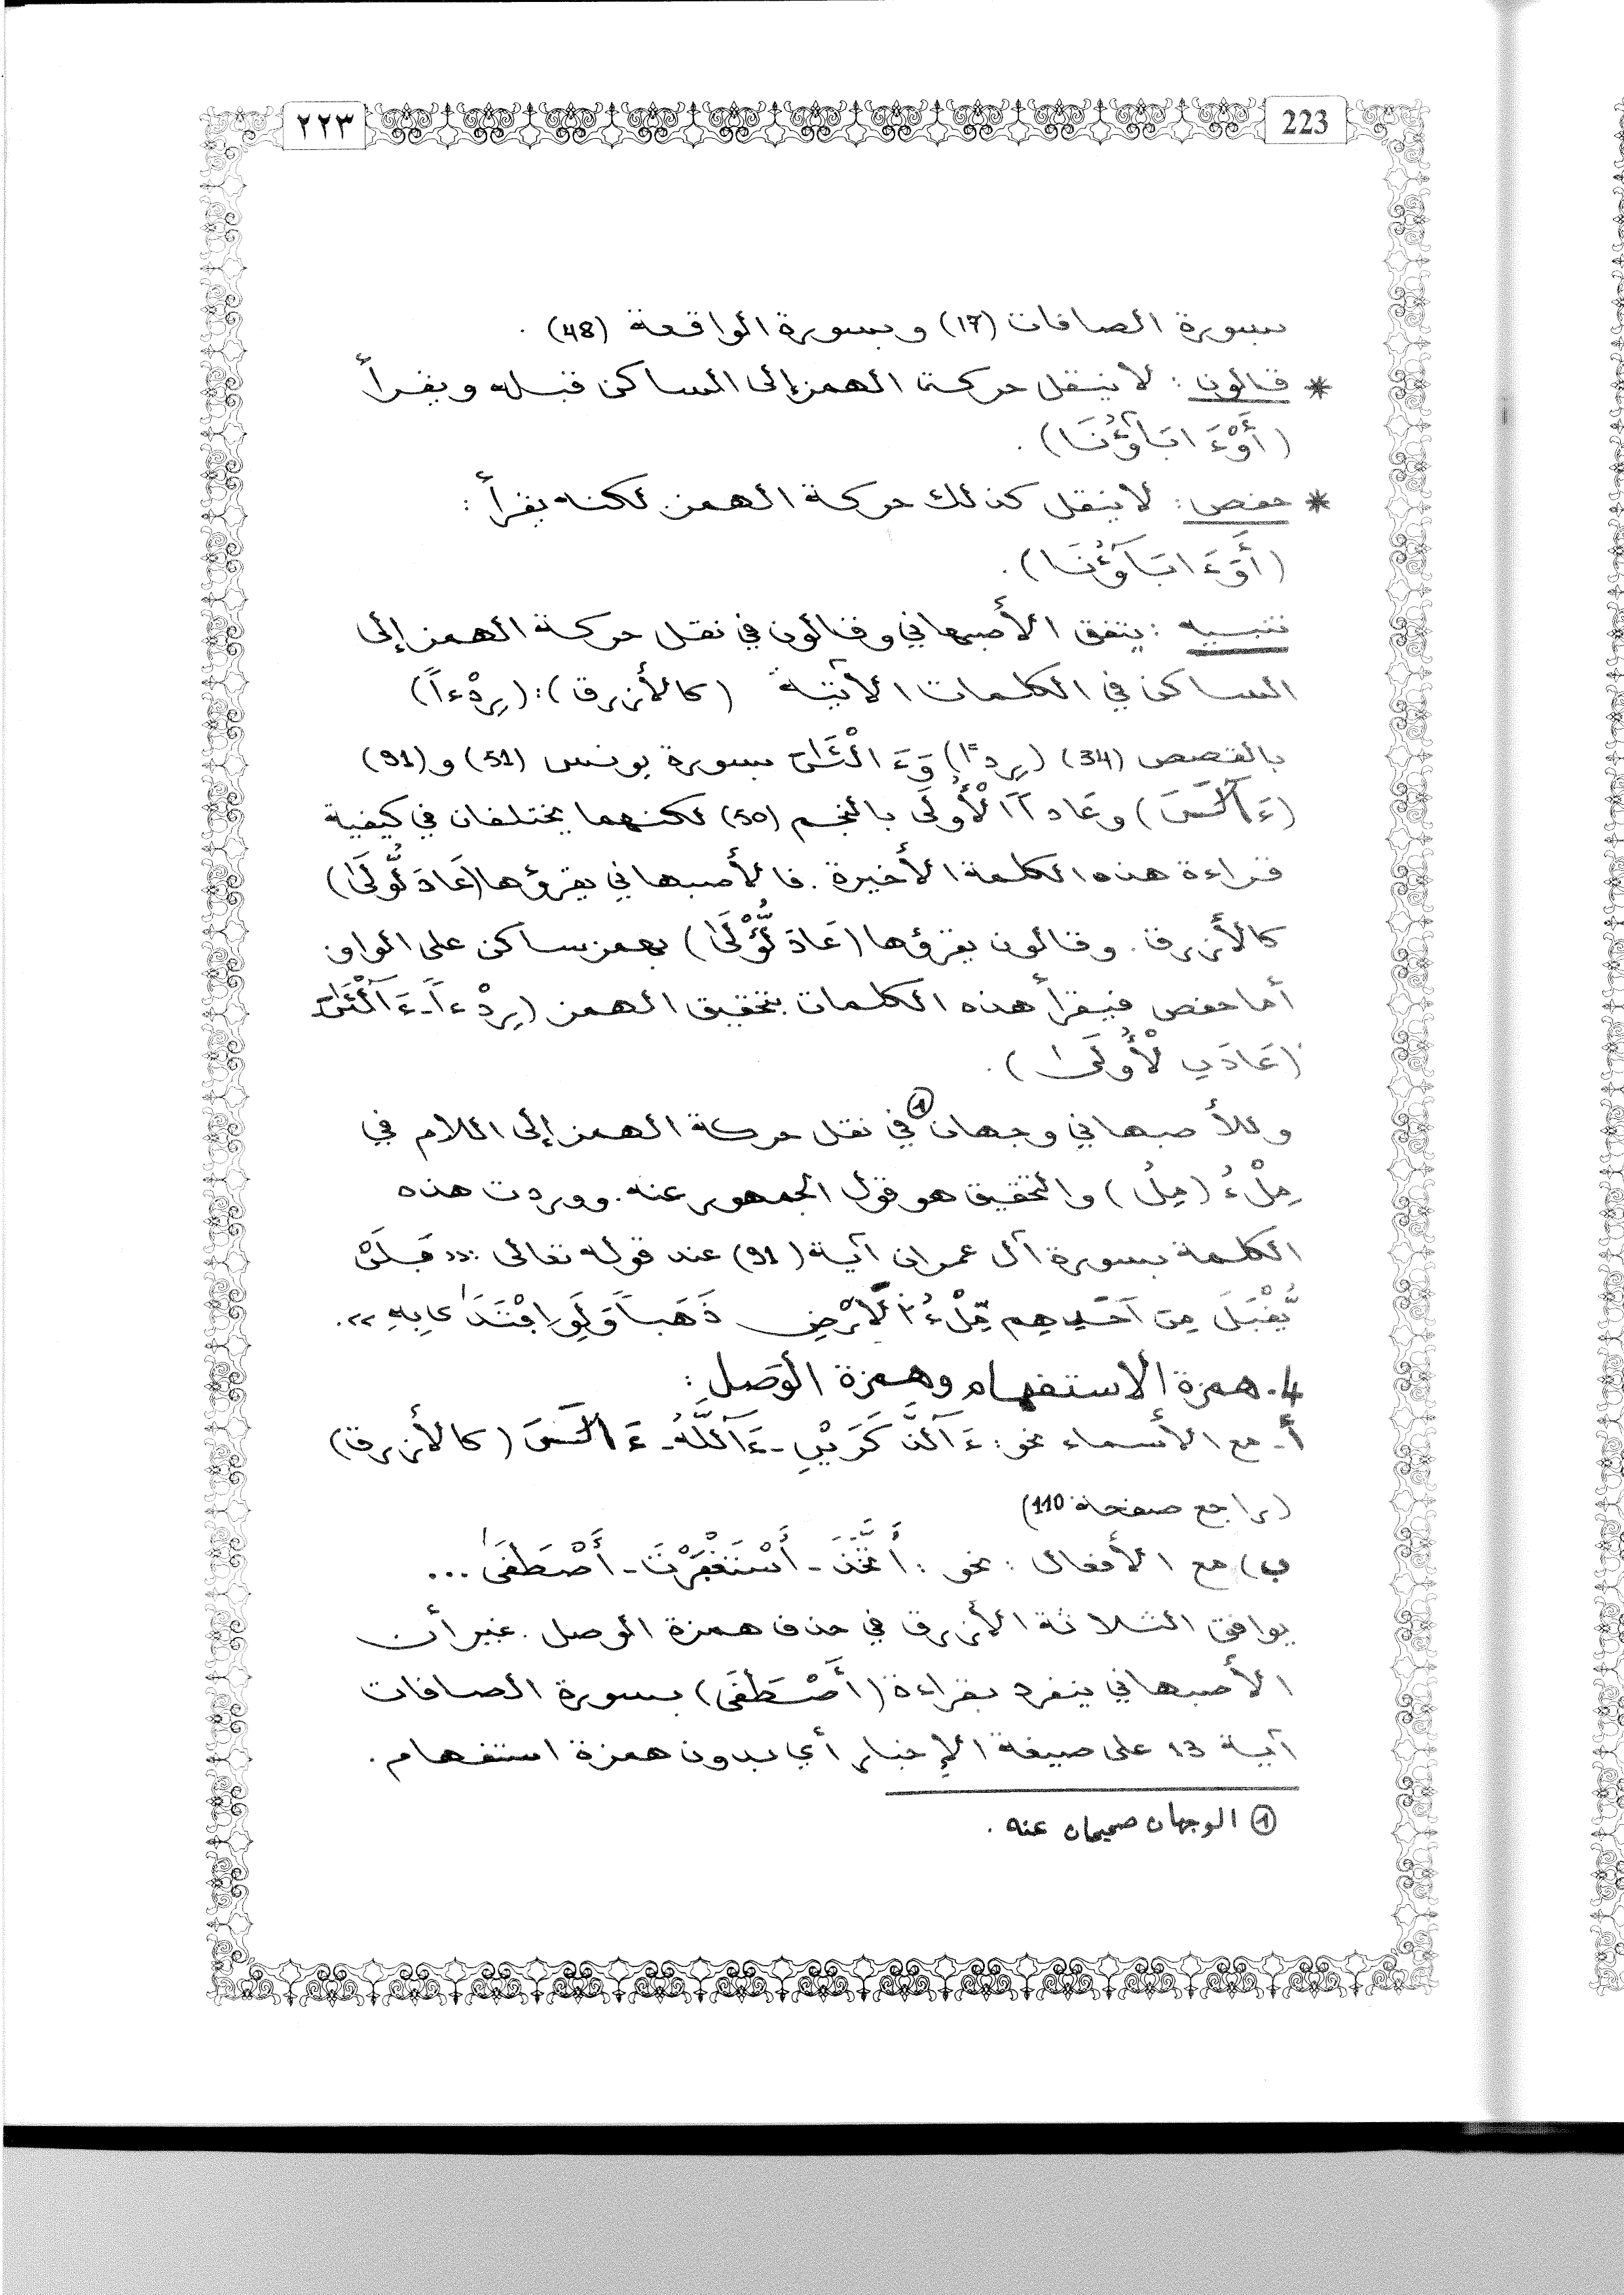 ٢٢٣
223
بسورة الصافات (17) وبسورة الواقعة (48) .
* قالون : لا ينقل حركة الهمز إلى الساكن قبله ويقرأ
(أَوْءَابَآؤُنَا) .
* حفص : لا ينقل كذلك حركة الهمز لكنه يقرأ :
(أَوَءَابَآؤُنَا) .
تنبيه : يتفق الأصبهاني وقالون في نقل حركة الهمز إلى
الساكن في الكلمات الآتية (كالأزرق) : (رِدْءاً)
بالقصص (34) (رِداً) وَءَالْـَٰٔنَ بسورة يونس (51) و (91)
(ءَآلَٰنَ) وعَاداً اَلْأُولَىٰ بالنجم (50) لكنهما يختلفان في كيفية
قراءة هذه الكلمة الأخيرة . فالأصبهاني يقرؤها (عَادَ لُّولَىٰ)
كالأزرق . وقالون يقرؤها (عَادَ لُّؤْلَىٰ) بهمز ساكن على الواو
أما حفص فيقرأ هذه الكلمات بتحقيق الهمز (رِدْءاً - ءَآلْـَٰٔنَ
(عَادَنِ لْأُولَىٰ) .
وللأصبهاني وجهان ① في نقل حركة الهمز إلى اللام في
مِلْءُ (مِلُ) والتحقيق هو قول الجمهور عنه . ووردت هذه
الكلمة بسورة آل عمران آية (91) عند قوله تعالى : « فَلَنْ
يُّقْبَلَ مِنَ اَحَدِهِم مِّلْءُ اُلَارْضِ ذَهَباً وَلَوِ اِفْتَدَىٰ بِهِ » .
4 - همزة الاستفهام وهمزة الوَصل :
أ - مع الأسماء نحو : ءَآلذَّكَرَيْنِ - ءَآللَّهُ - ءَآلَٰنَ (كالأزرق)
(راجع صفحة 110)
ب) مع الأفعال : نحو : أَتَّخَذَ - أَسْتَغْفَرْتَ - أَصْطَفَىٰ ...
يوافق الثلاثة الأزرق في حذف همزة الوصل . غير أن
الأصبهاني ينفرد بقراءة (اَصْطَفَى) بسورة الصافات
آية 13 على صيغة الإخبار أي بدون همزة استفهام .
① الوجهان صحيحان عنه .